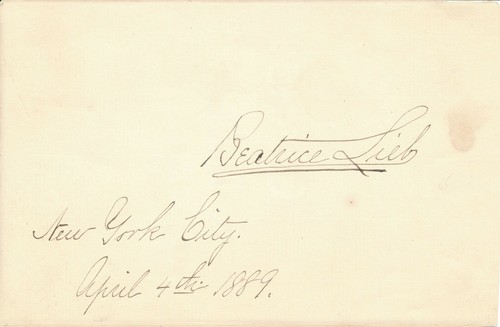 Beatrice Lieb
New York City.
April 4th 1889.